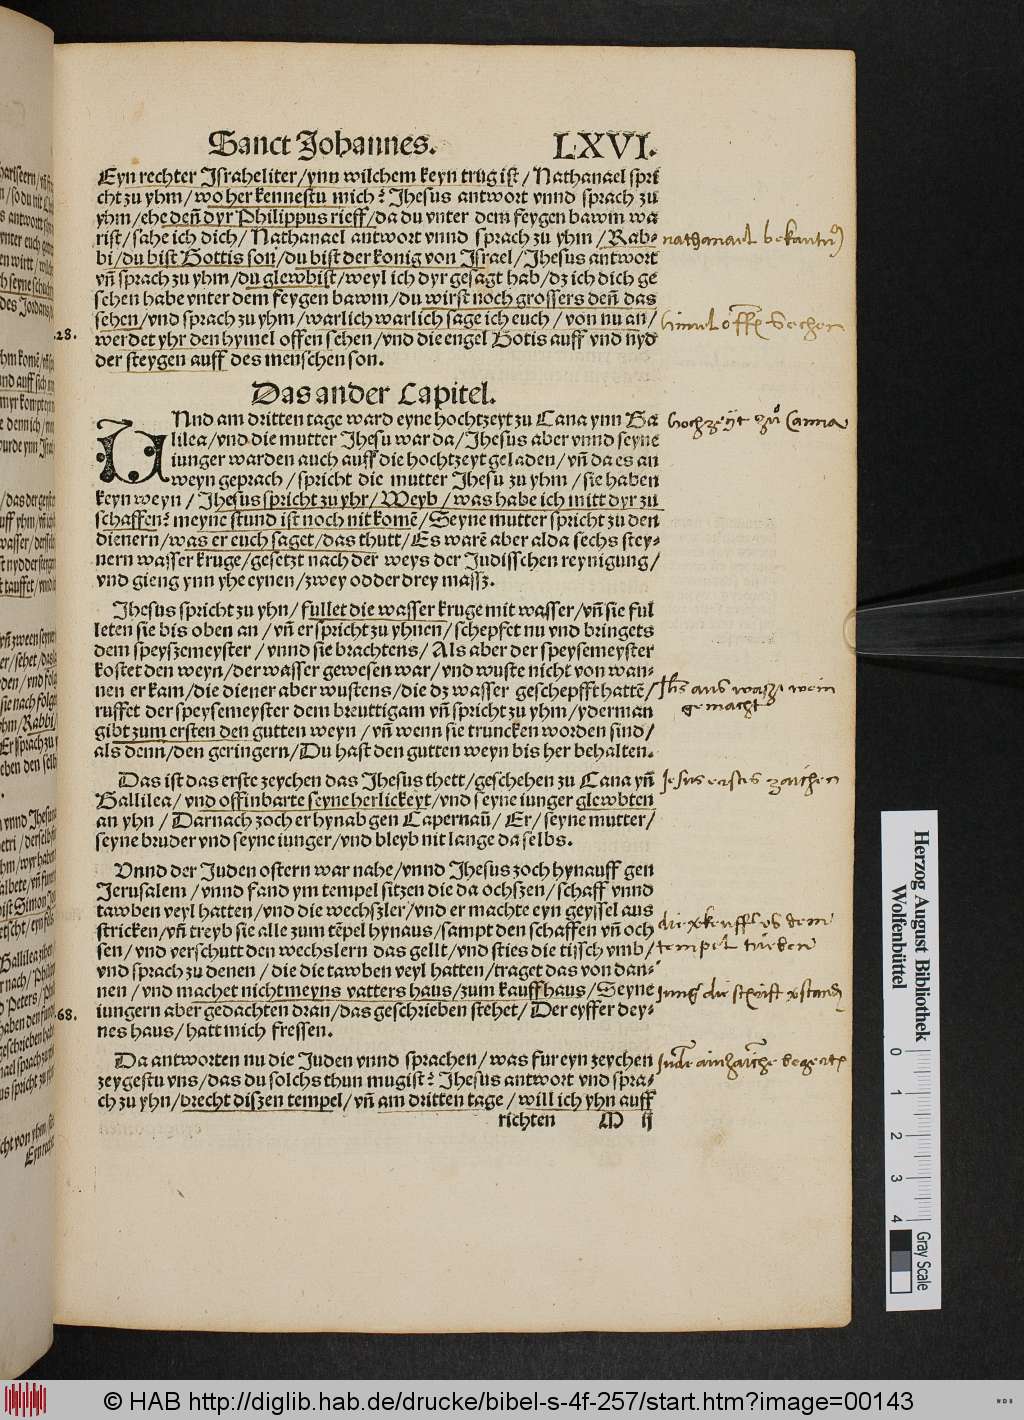 Sanct Johannes. LXVI.
Eyn rechter Israheliter/ynn wilchem keyn trüg ist/Nathanael spri
cht zu yhm/wo her kennestu mich? Jhesus antwort vnnd sprach zu
yhm/ehe deñ dyr Philippus rieff/da du vnter dem feygen bawm wa
rist/sahe ich dich/Nathanael antwort vnnd sprach zu yhm/Rab-
bi/du bist Gottis son/du bist der konig von Israel/Jhesus antwort
vñ sprach zu yhm/du glewbist/weyl ich dyr gesagt hab/dz ich dich ge
sehen habe vnter dem feygen bawm/du wirst noch grossers deñ das
sehen/vnd sprach zu yhm/warlich warlich sage ich euch/von nu an/
werdet yhr den hymel offen sehen/vnd die engel Gotis auff vnd nyd
der steygen auff des menschen son.
Das ander Capitel.
VNnd am dritten tage ward eyne hochtzeyt zu Cana ynn Ga
lilea/vnd die mutter Jhesu war da/Jhesus aber vnnd seyne
iunger warden auch auff die hochtzeyt geladen/vñ da es an
weyn geprach/spricht die mutter Jhesu zu yhm/sie haben
keyn weyn/Jhesus spricht zu yhr/Weyb/was habe ich mitt dyr zu
schaffen? meyne stund ist noch nit komē/Seyne mutter spricht zu den
dienern/was er euch saget/das thutt/Es warē aber alda sechs stey-
nern wasser kruge/gesetzt nach der weys der Judisschen reynigung/
vnd gieng ynn yhe eynen/zwey odder drey massz.
Jhesus spricht zu yhn/fullet die wasser kruge mit wasser/vñ sie ful
leten sie bis oben an/vñ er spricht zu yhnen/schepfet nu vnd bringets
dem speyszemeyster/vnnd sie brachtens/Als aber der speysemeyster
kostet den weyn/der wasser gewesen war/vnd wuste nicht von wan-
nen er kam/die diener aber wustens/die dz wasser geschepfft hattē/
ruffet der speysemeyster dem breuttigam vñ spricht zu yhm/yderman
gibt zum ersten den gutten weyn/vñ wenn sie truncken worden sind/
als denn/den geringern/Du hast den gutten weyn bis her behalten.
Das ist das erste zeychen das Jhesus thett/geschehen zu Cana yñ
Gallilea/vnd offinbarte seyne herlickeyt/vnd seyne iunger glewbten
an yhn/Darnach zoch er hynab gen Capernaū/Er/seyne mutter/
seyne bruder vnd seyne iunger/vnd bleyb nit lange da selbs.
Vnnd der Juden ostern war nahe/vnnd Jhesus zoch hynauff gen
Jerusalem/vnnd fand ym tempel sitzen die da ochszen/schaff vnnd
tawben veyl hatten/vnd die wechszler/vnd er machte eyn geyssel aus
stricken/vñ treyb sie alle zum tēpel hynaus/sampt den schaffen vñ och
sen/vnd verschutt den wechslern das gellt/vnd sties die tissch vmb/
vnd sprach zu denen/die die tawben veyl hatten/traget das von dan-
nen/vnd machet nicht meyns vatters haus/zum kauffhaus/Seyne
iungern aber gedachten dran/das geschrieben stehet/Der eyffer dey-
nes haus/hatt mich fressen.
Da antworten nu die Juden vnnd sprachen/was fur eyn zeychen
zeygestu vns/das du solchs thun mugist? Jhesus antwort vnd spra-
ch zu yhn/brecht diszen tempel/vñ am dritten tage/will ich yhn auff
richten M ij
28.
68.
hochzeÿt zů Canna
Jhs aus wasz wein
gemacht
Jesus erstes zaichen
Herzog August Bibliothek
Wolfenbüttel
0 1 2 3 4
Gray Scale
© HAB http://diglib.hab.de/drucke/bibel-s-4f-257/start.htm?image=00143